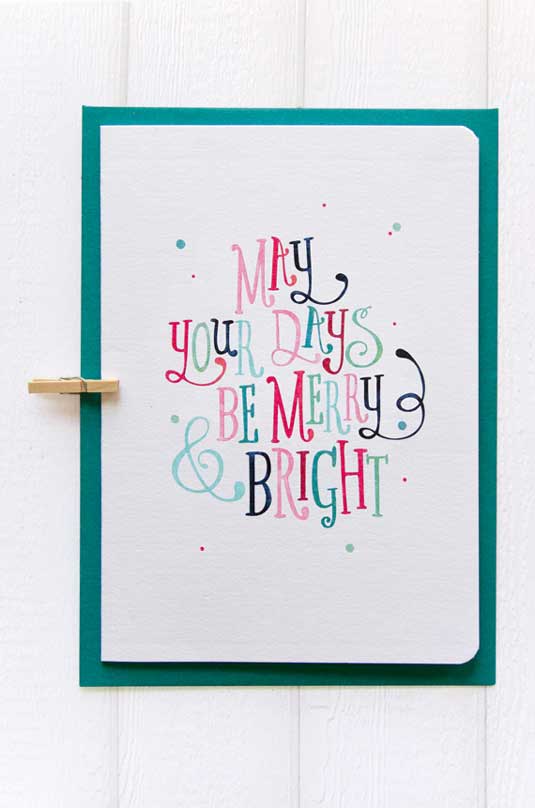 MAY
YOUR DAYS
BE MERRY
& BRIGHT